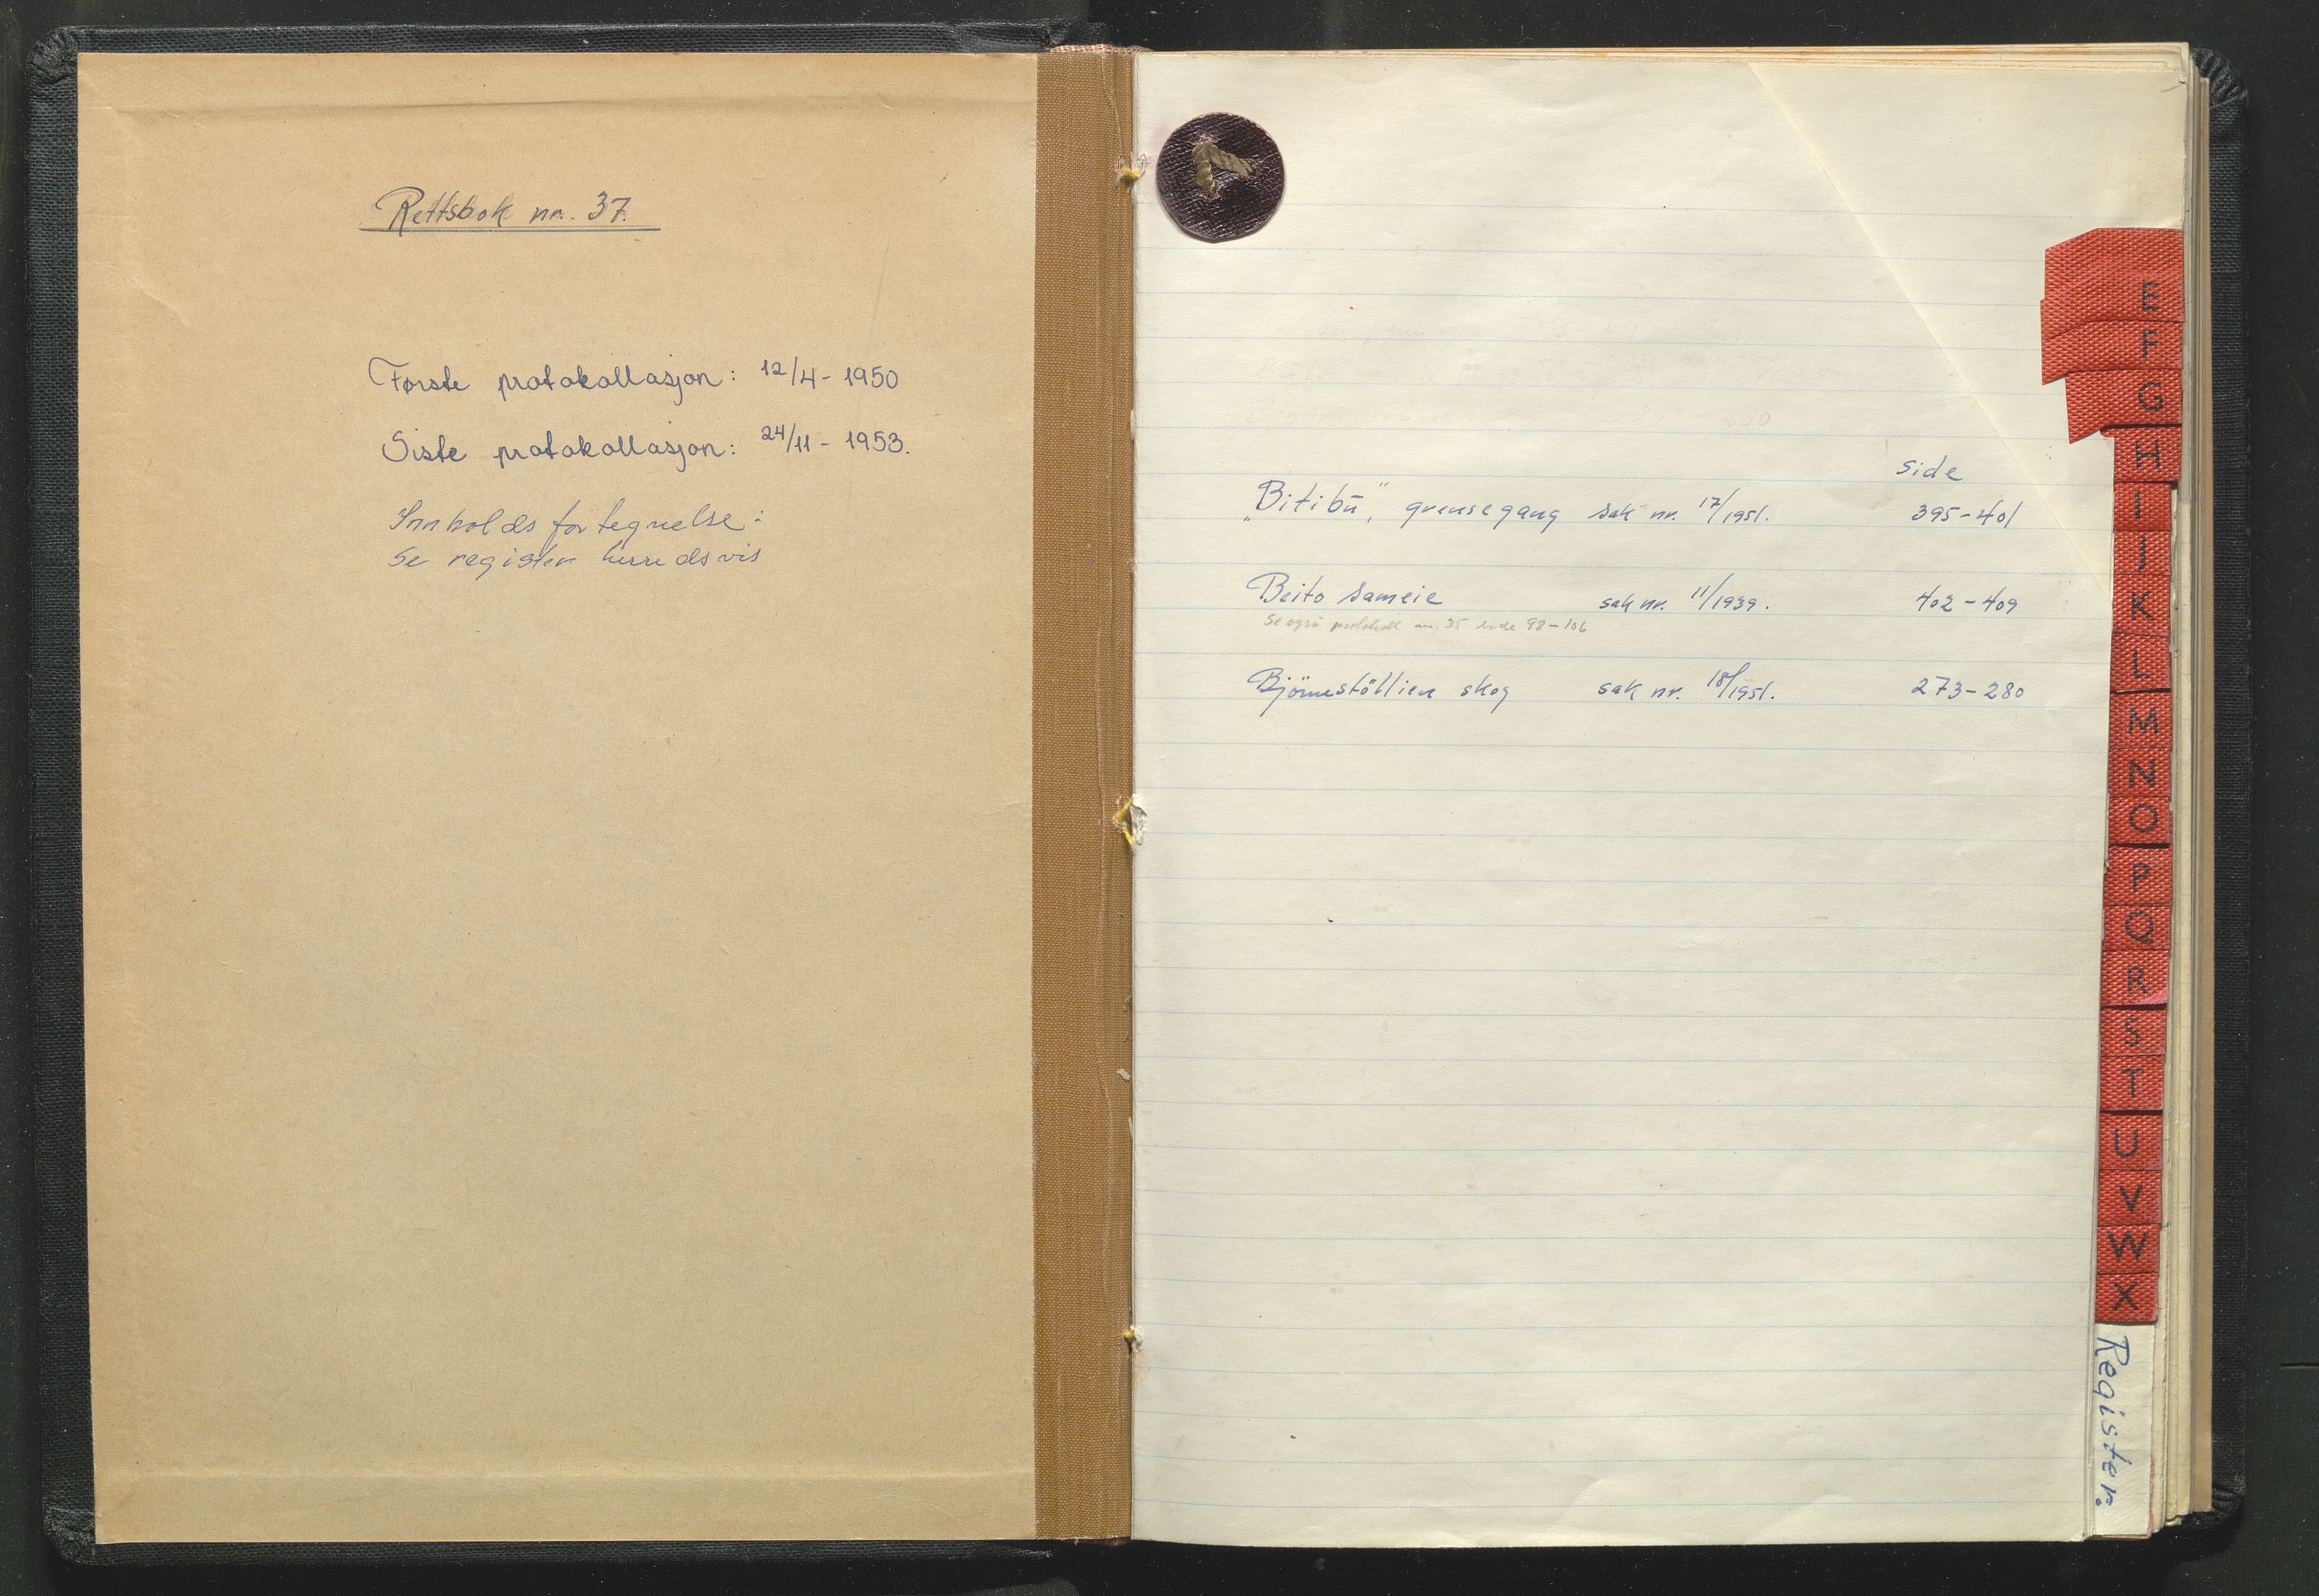 Rettsbok nr. 37.
Første protokollasjon: 12/4 - 1950
Siste protokollasjon: 24/11 - 1953.
Innholdsfortegnelse:
Se register herredsvis
side
„Bitibu", grensegang sak nr. 17/1951. 395-401
Beito sameie sak nr. 11/1939. 402-409
Se også protokoll nr. 35 side 98-106
Björnestöllien skog sak nr. 18/1951. 273-280
E
F
G
H
I
J
K
L
M
N
O
P
Q
R
S
T
U
V
W
X
Register.